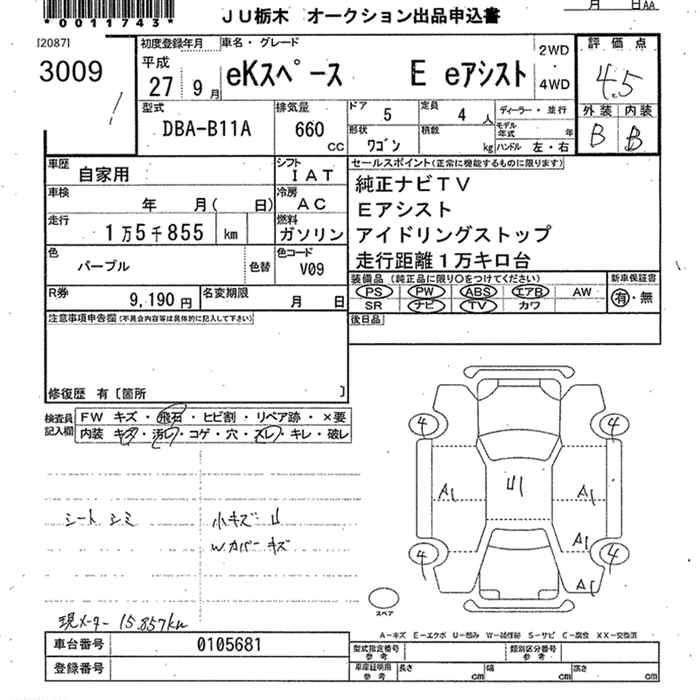 *0011743*
JU栃木 オークション出品申込書
月 日AA
[2087]
3009
初度登録年月
平成
27年 9月
車名・グレード
eKスペース E eアシスト
2WD
・
4WD
評価点
4.5
外装 内装
B B
型式
DBA-B11A
排気量
660
CC
ドア 5
定員 4人
形状 ワゴン
積載 kg
ディーラー・並行
モデル年式 年
ハンドル 左・右
車歴
自家用
シフト
IAT
車検
年 月( 日)
冷房
AC
走行
1万5千855 km
燃料
ガソリン
色
パープル
色替
色コード
V09
R券
9,190円
名変期限
月 日
セールスポイント(正常に機能するものに限ります)
純正ナビTV
Eアシスト
アイドリングストップ
走行距離1万キロ台
装備品(純正品に限り○をつけてください)
PS PW ABS エアB AW
SR ナビ TV カワ
新車保証書
有・無
後日品
注意事項申告欄(不具合内容等は具体的に記入して下さい)
修復歴 有〔箇所 〕
検査員記入欄
FW キズ・飛石・ヒビ割・リペア跡・×要
内装 キズ・汚レ・コゲ・穴・スレ・キレ・破レ
シート シミ
小キズ U
Wカバー キズ
4 4
A1 U1 A1
A1
4 4
A1
スペア
現メーター 15.857km
A-キズ E-エクボ U-凹み W-補修跡 S-サビ C-腐食 XX-交換済
車台番号
0105681
登録番号
型式指定番号
参考
類別区分番号
参考
車庫証明用
参考
長さ cm
幅 cm
高さ cm